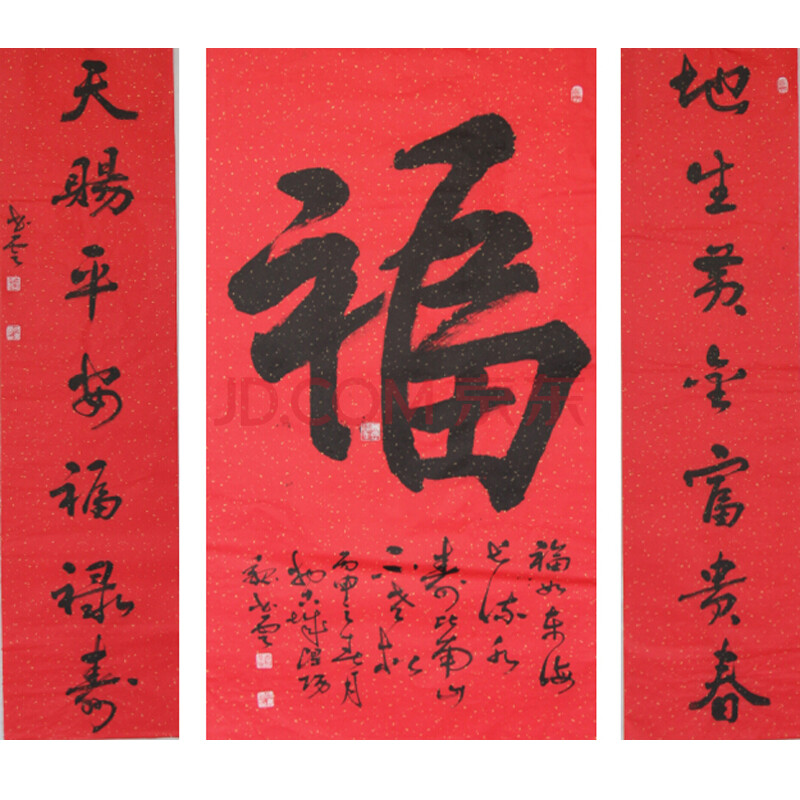 地生黄金富贵春
福
福如东海
长流水
寿比南山
不老松
丙申之春月
天賜平安福禄寿
JD.COM 京东